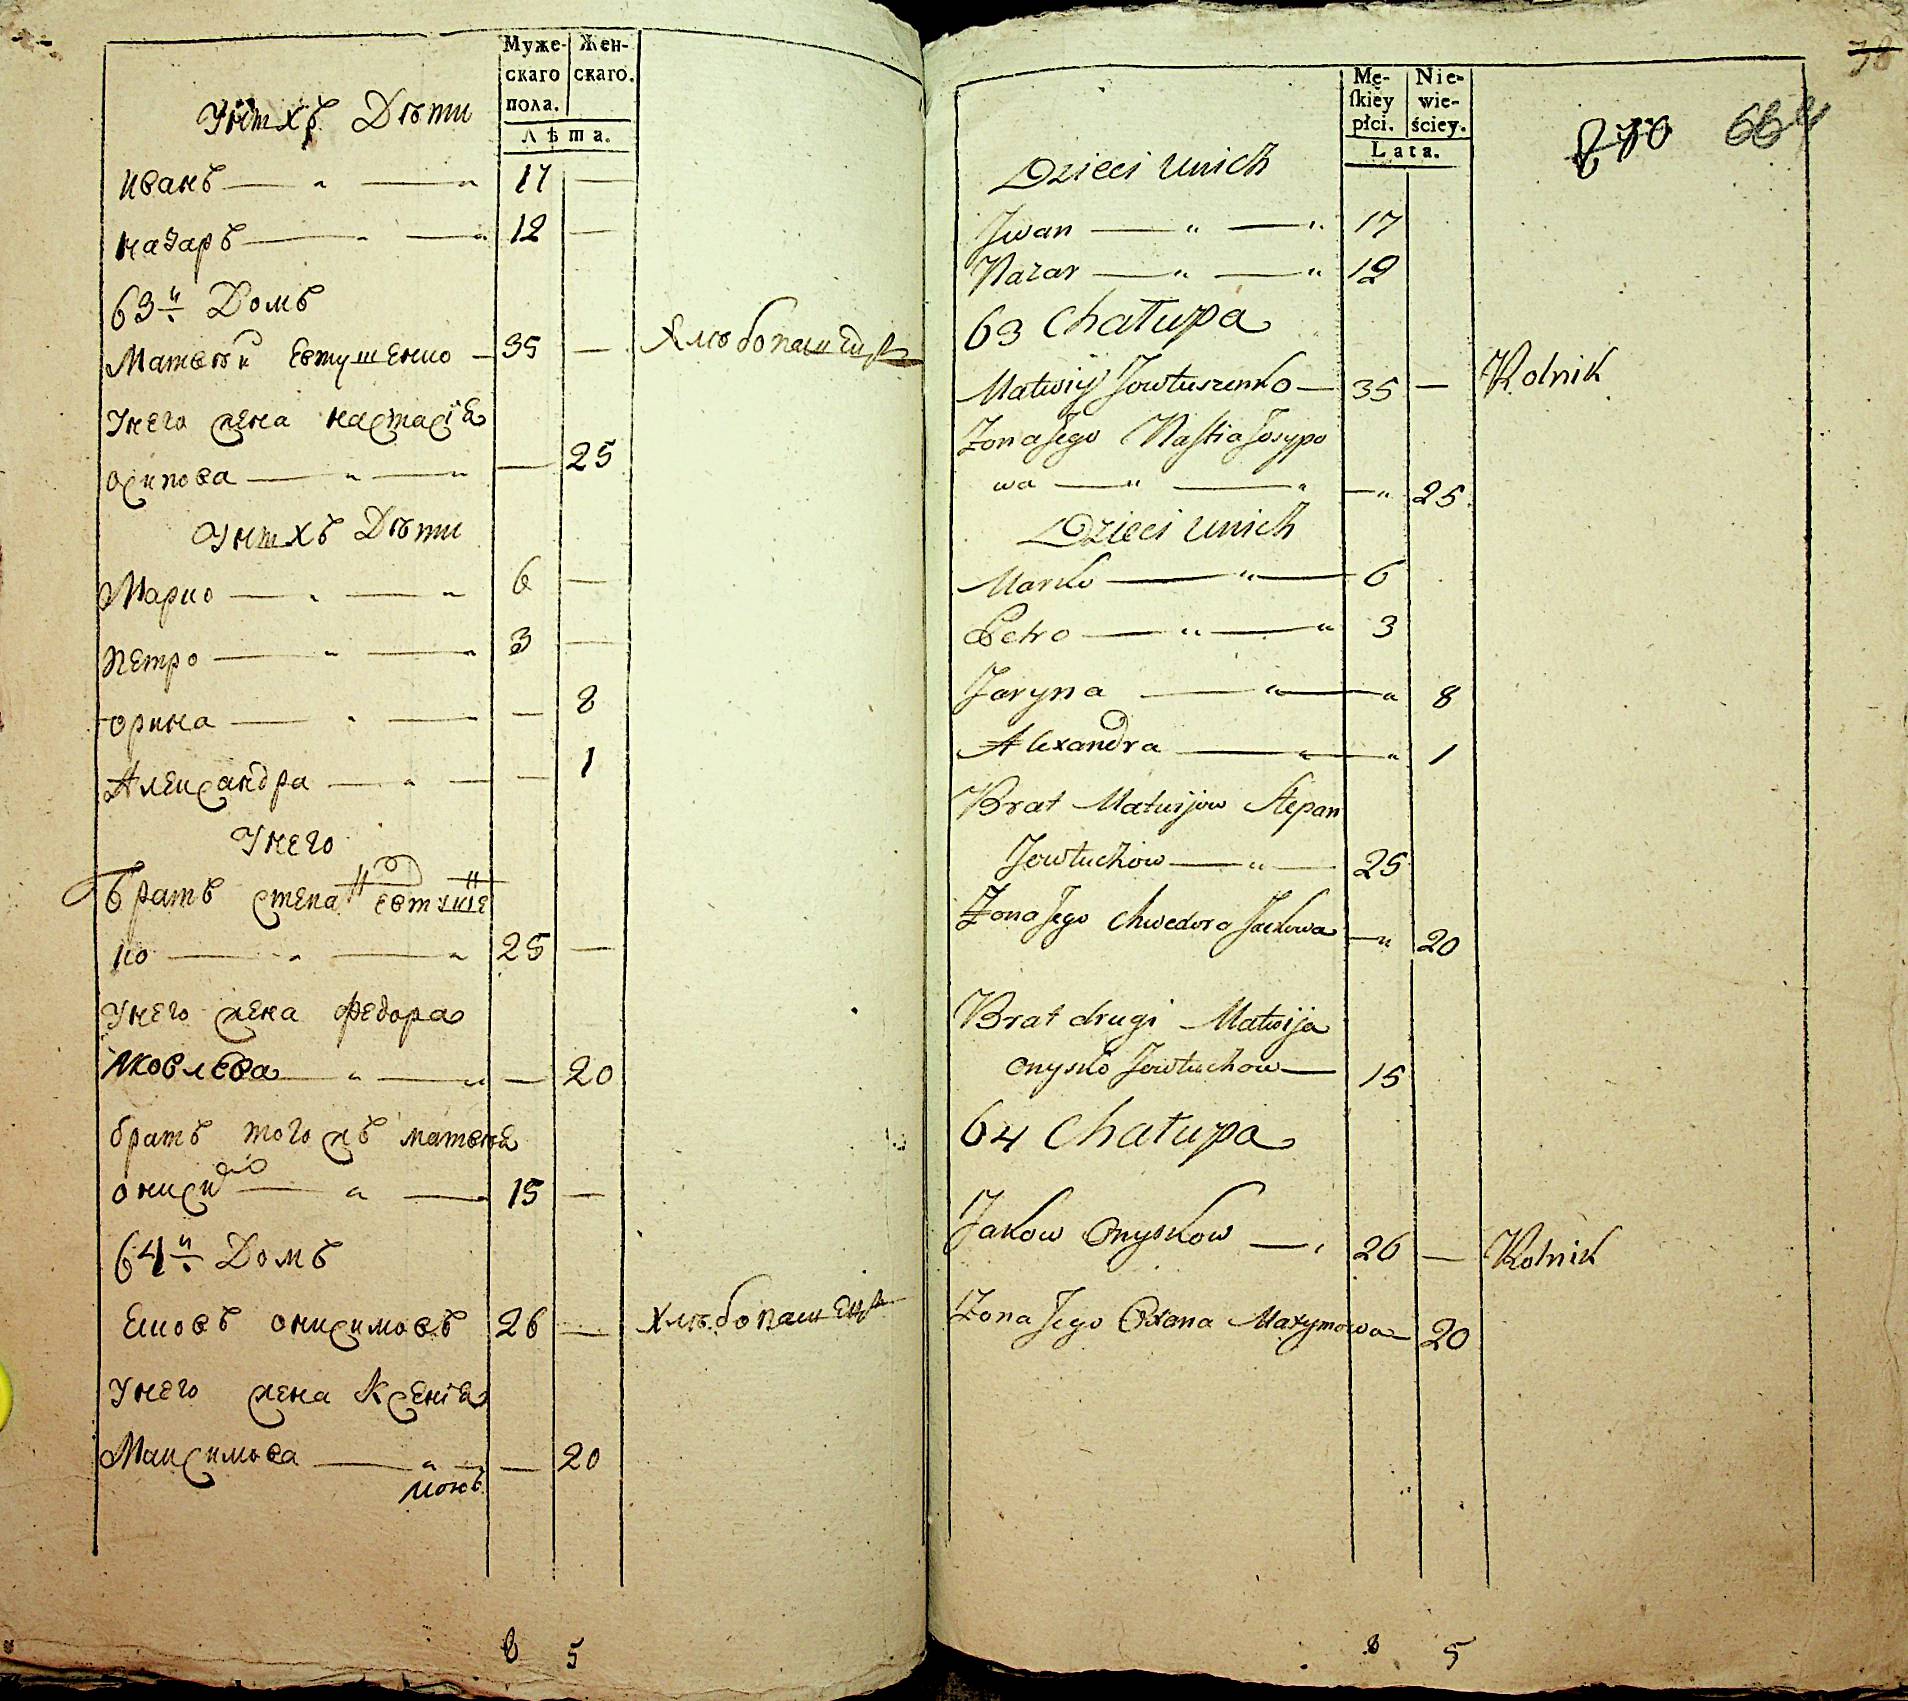 Муже-
скаго
пола.
Жен-
скаго.
Лѣта.
Унихъ Дѣти
иванъ — „ — „ 17 —
назаръ — „ — „ 12 —
63-й Домъ
Матвѣй Евтушенко — 35 — Хлѣбопашецъ
Унего жена настасіѧ
осипова — „ — „ — 25
Унихъ Дѣти
Марко — „ — „ 6 —
петро — „ — „ 3 —
орина — „ — „ — 8
Александра — „ — — 1
Унего
братъ степанъ
ко — „ — „ 25 —
Унего жена федора
яковлева — „ — „ — 20
братъ того жъ матвѣѧ
ониско — „ — „ 15 —
64-й Домъ
Яковъ онисимовъ 26 — Хлѣбопашецъ
Унего жена Ксеніѧ
Максимова — „ — „ — 20
8 5
Mę-
ſkiey
płci.
Nie-
wie-
ściey.
Lata.
78
664
Dzieci unich
Jwan — „ — „ 17
Nazar — „ — „ 12
63 Chałupa
Matwiy Jowtuszenko — 35 — Rolnik
Żona Jego Nastia Josypo
wa — „ — „ — „ 25
Dzieci unich
Marko — „ — 6
Petro — „ — „ 3
Jaryna — „ — „ 8
Alexandra — „ — „ 1
Brat Matwijow Stepan
Jowtuchow — „ — 25
Żona Jego Chwedora Jackowa — „ 20
Brat drugi Matwija
Onysko Jowtuchow — 15
64 Chałupa
Jakow Onyskow — „ 26 — Rolnik
Żona Jego Oxana Maxymowa — 20
8 5